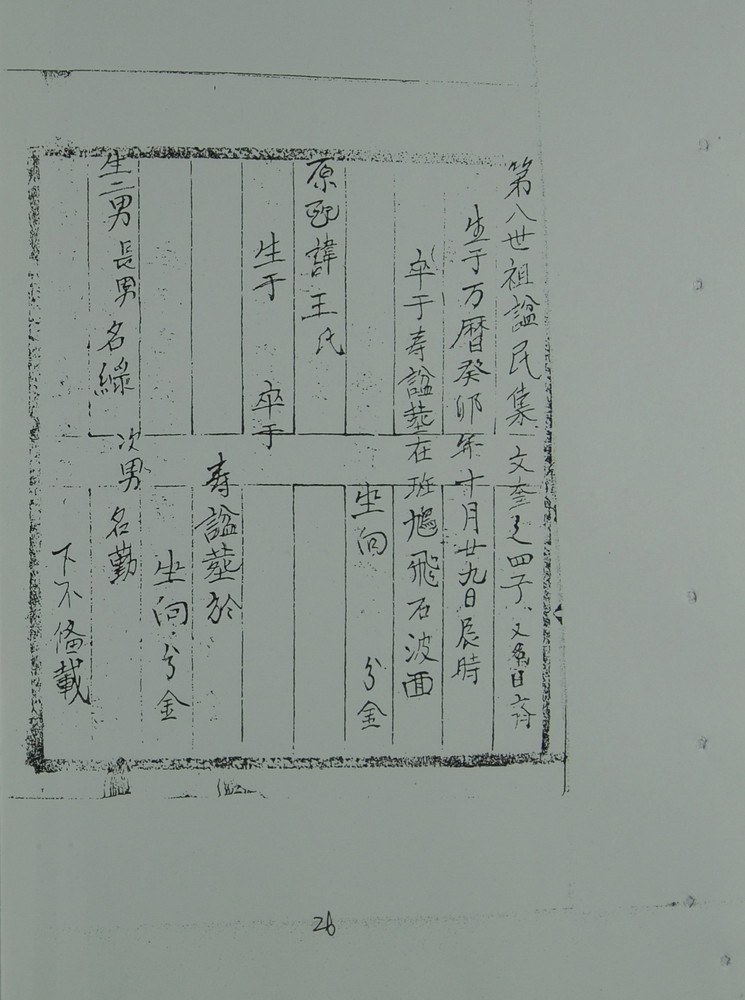 第八世祖諡民集 文奎之四子 又系日齊
生于万曆癸卯年十月廿九日辰時
卒于 寿 諡葬在班鳩飛石波面
坐向 分金
原配諱王氏
生于 卒于
寿 諡葬於
坐向 分金
生二男 長男名綠 次男名勤
下不俻載
26